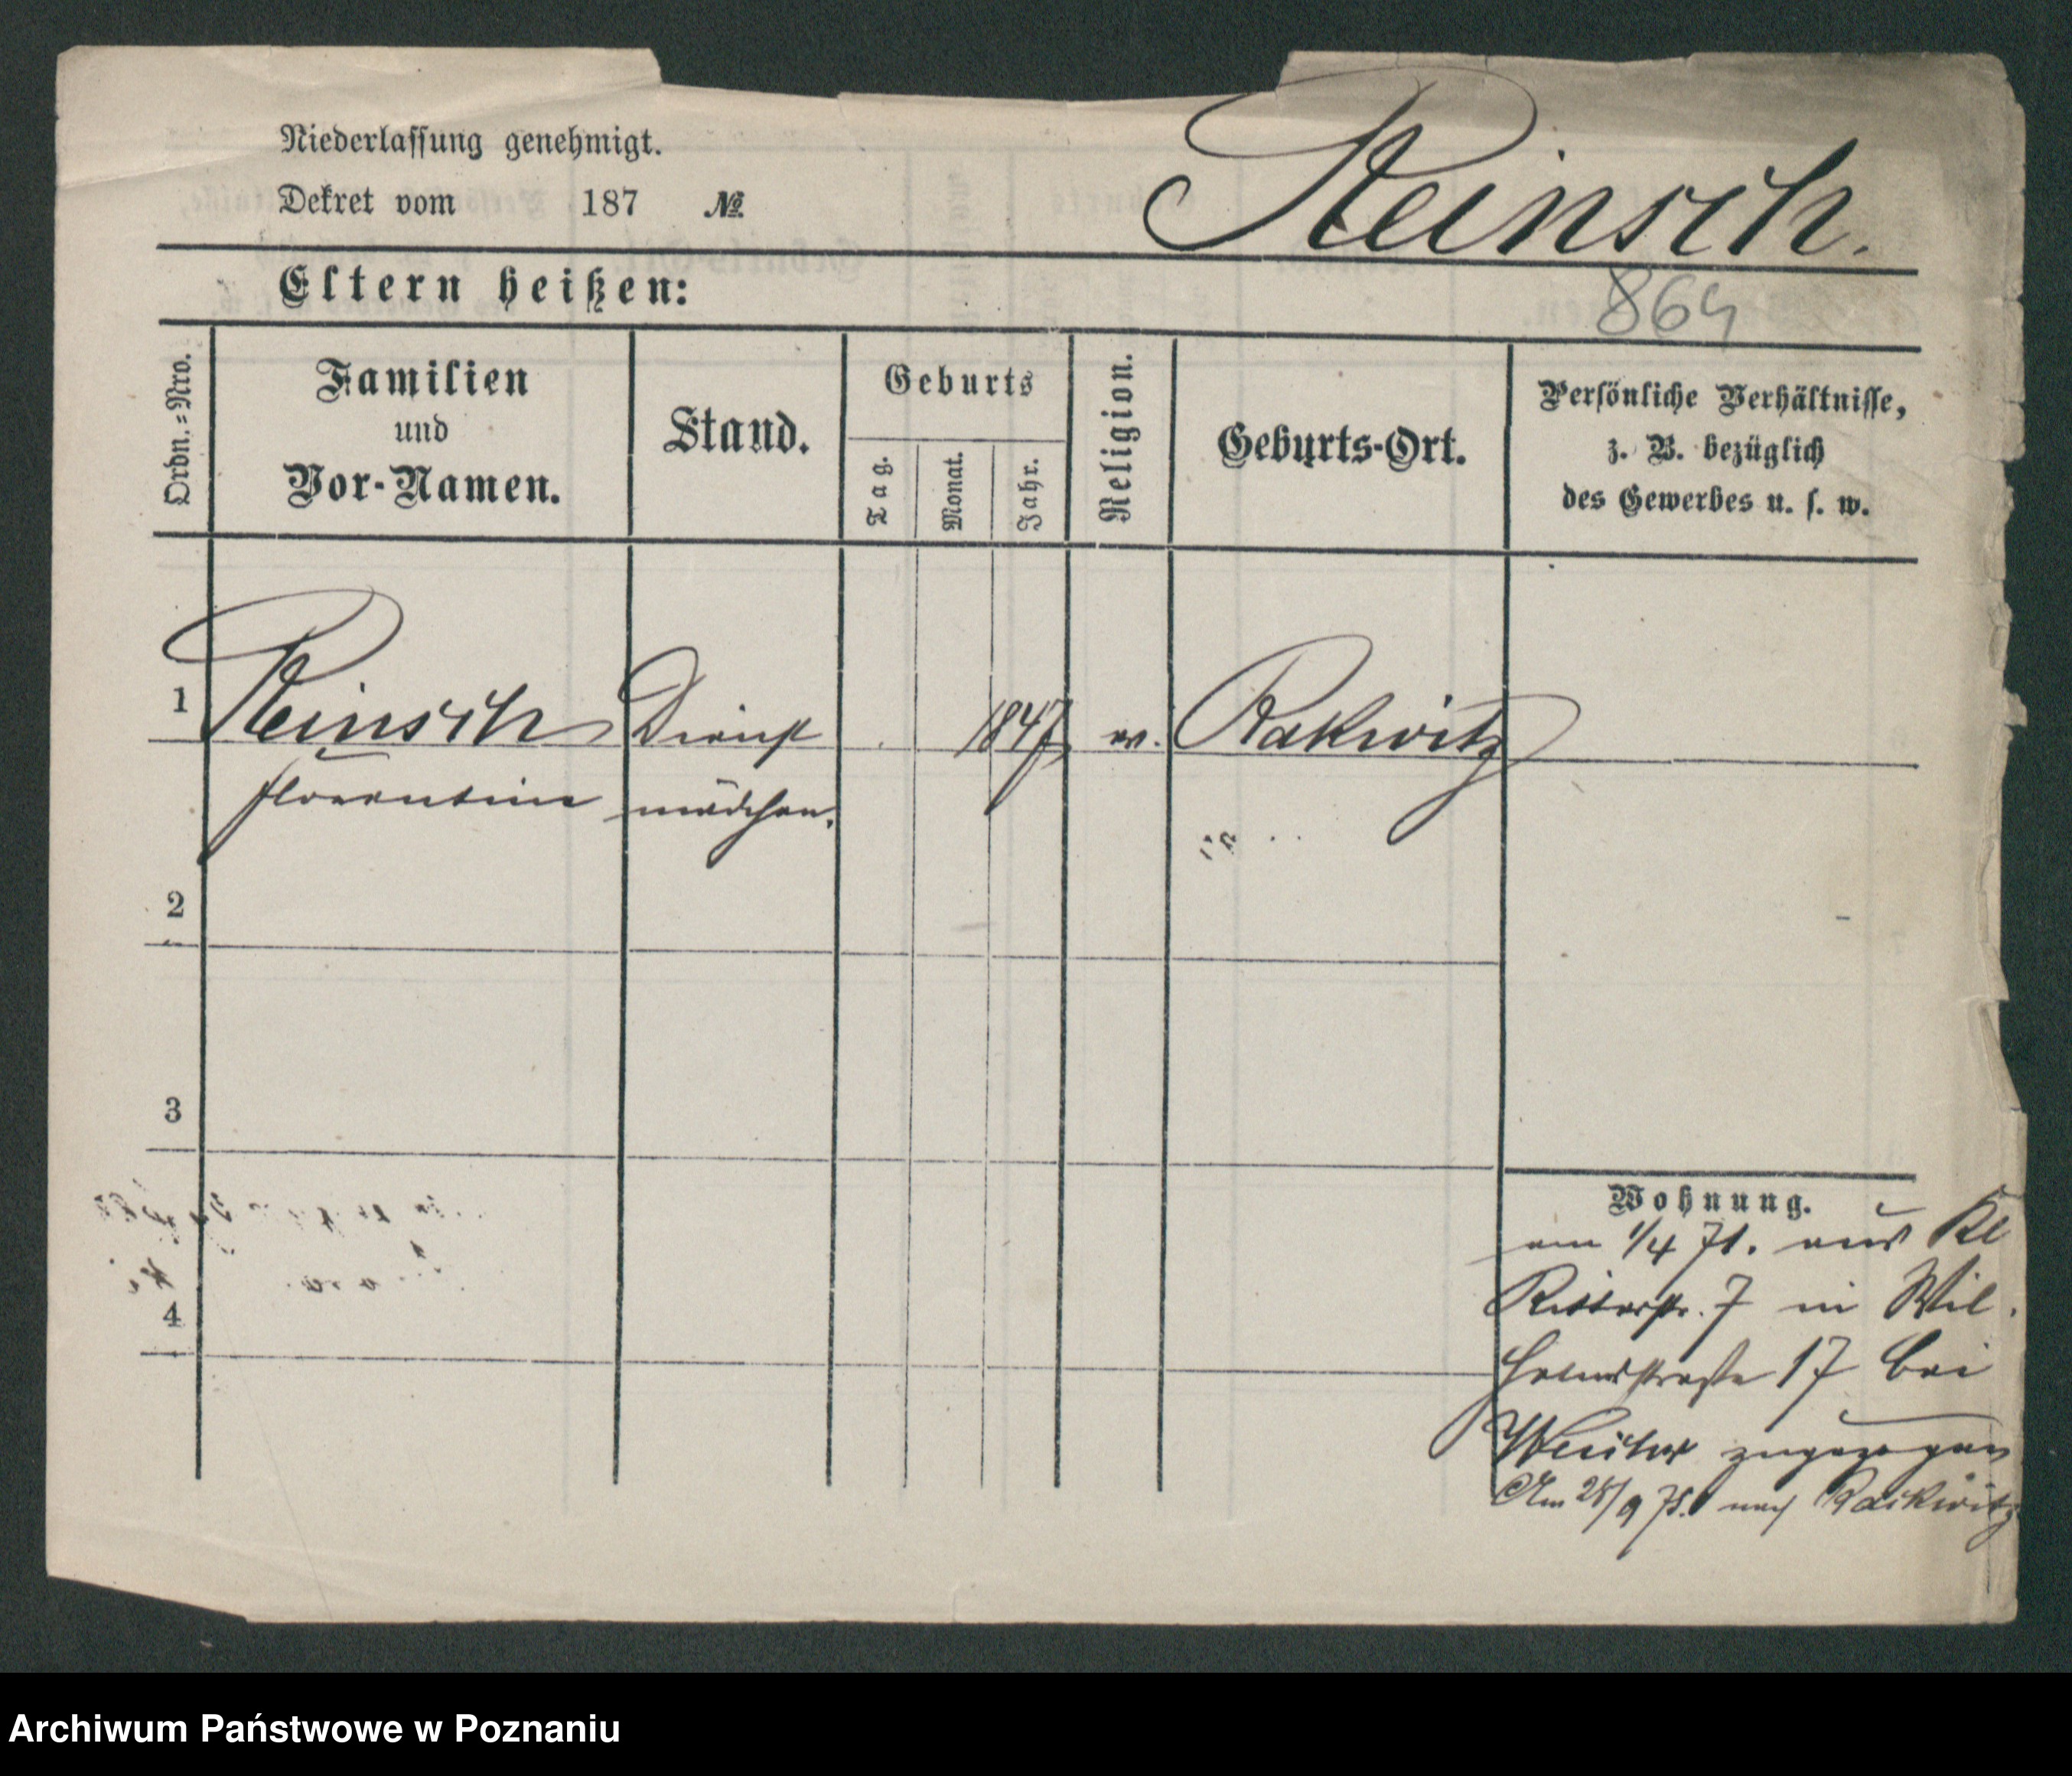 Niederlassung genehmigt.
Dekret vom 187 No.
Reinsch.
Eltern heißen:
864
Ordn.=Nro.
Familien
und
Vor-Namen.
Stand.
Geburts
Tag.
Monat.
Jahr.
Religion.
Geburts-Ort.
Persönliche Verhältnisse,
z. B. bezüglich
des Gewerbes u. s. w.
1 Reinsch Dienst 1847 ev. Rakwitz
Florentine mädchen.
2
3
4
Wohnung.
am 1/4 71. aus Kl
Ritterstr. 7 in Wil
helmstraße 17 bei
zugezogen
Am 28/9 75. nach Rackwitz
Archiwum Państwowe w Poznaniu